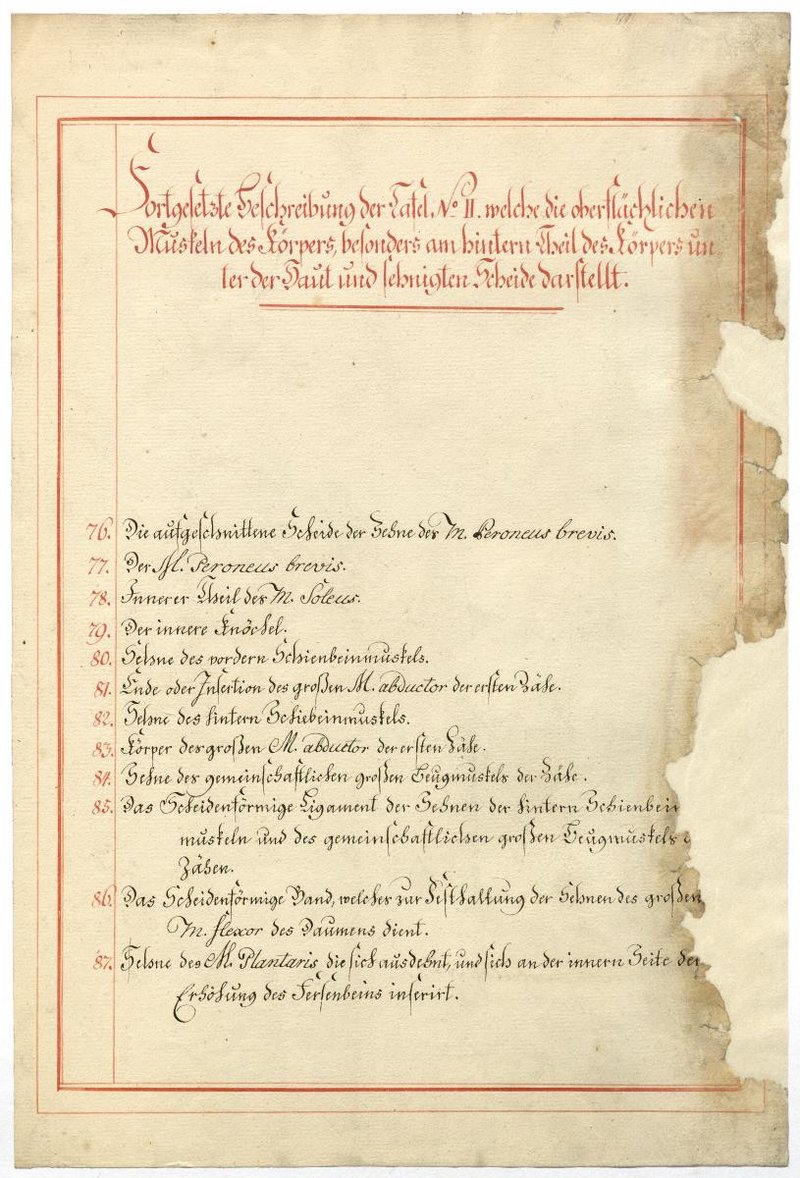 Fortgesetzte Beschreibung der Tafel No II. welche die oberflächlichen
Muskeln des Körpers, besonders am hintern Theil des Körpers un-
ter der Haut und sehnigten Scheide darstellt.
76. Die aufgeschnittene Scheide der Sehne des M. Peroneus brevis.
77. Der M. Peroneus brevis.
78. Innerer Theil des M. Soleus.
79. Der innere Knöchel.
80. Sehne des vordern Schienbeinmuskels.
81. Ende oder Insertion des großen M. abductor der ersten Zähe.
82. Sehne des hintern Schiebeinmuskels.
83. Körper des großen M. abductor der ersten Zähe.
84. Sehne des gemeinschaftlichen großen Beugmuskels der Zähe.
85. Das Scheidenförmige Ligament der Sehnen der hintern Schienbein
muskeln und des gemeinschaftlichen großen Beugmuskels
Zähen.
86. Das Scheidenförmige Band, welches zur Festhaltung der Sehnen des großen
M. flexor des Daumens dient.
87. Sehne des M. Plantaris die sich ausdehnt, und sich an der innern Seite der
Erhöhung des Fersenbeins inserirt.